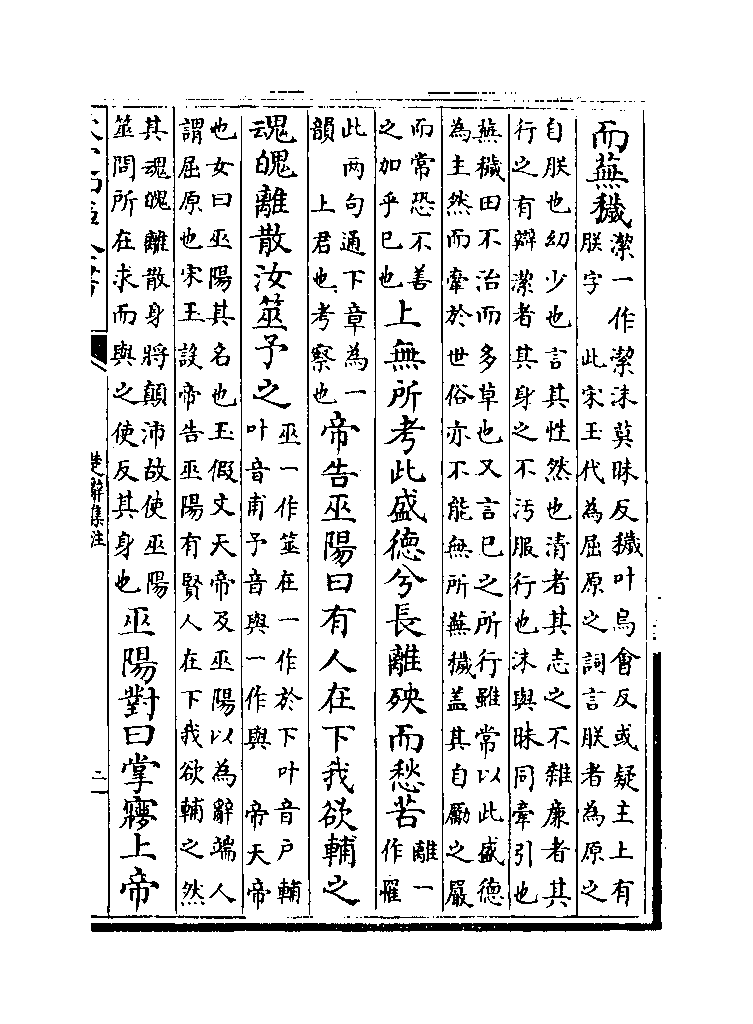 而蕪穢
潔一作潔沬莫昧反穢叶烏會反或疑主上有
朕字　此宋玉代為屈原之詞言朕者為原之
自朕也幼少也言其性然也清者其志之不雜廉者其
行之有辯潔者其身之不汚服行也沬與昧同牽引也
蕪穢田不治而多草也又言已之所行雖常以此盛德
為主然而牽於世俗亦不能無所蕪穢蓋其自勵之嚴
而常恐不善
之加乎已也
上無所考此盛德兮長離殃而愁苦
離一
作罹
此两句通下章為一
韻　上君也考察也
帝告巫陽曰有人在下我欲輔之
魂魄離散汝筮予之
巫一作筮在一作於下叶音戶輔
叶音甫予音與一作與　帝天帝
也女曰巫陽其名也玉假文天帝及巫陽以為辭端人
謂屈原也宋玉設帝告巫陽有賢人在下我欲輔之然
其魂魄離散身將顛沛故使巫陽
筮問所在求而與之使反其身也
巫陽對曰掌㝱上帝
楚辭集注
二